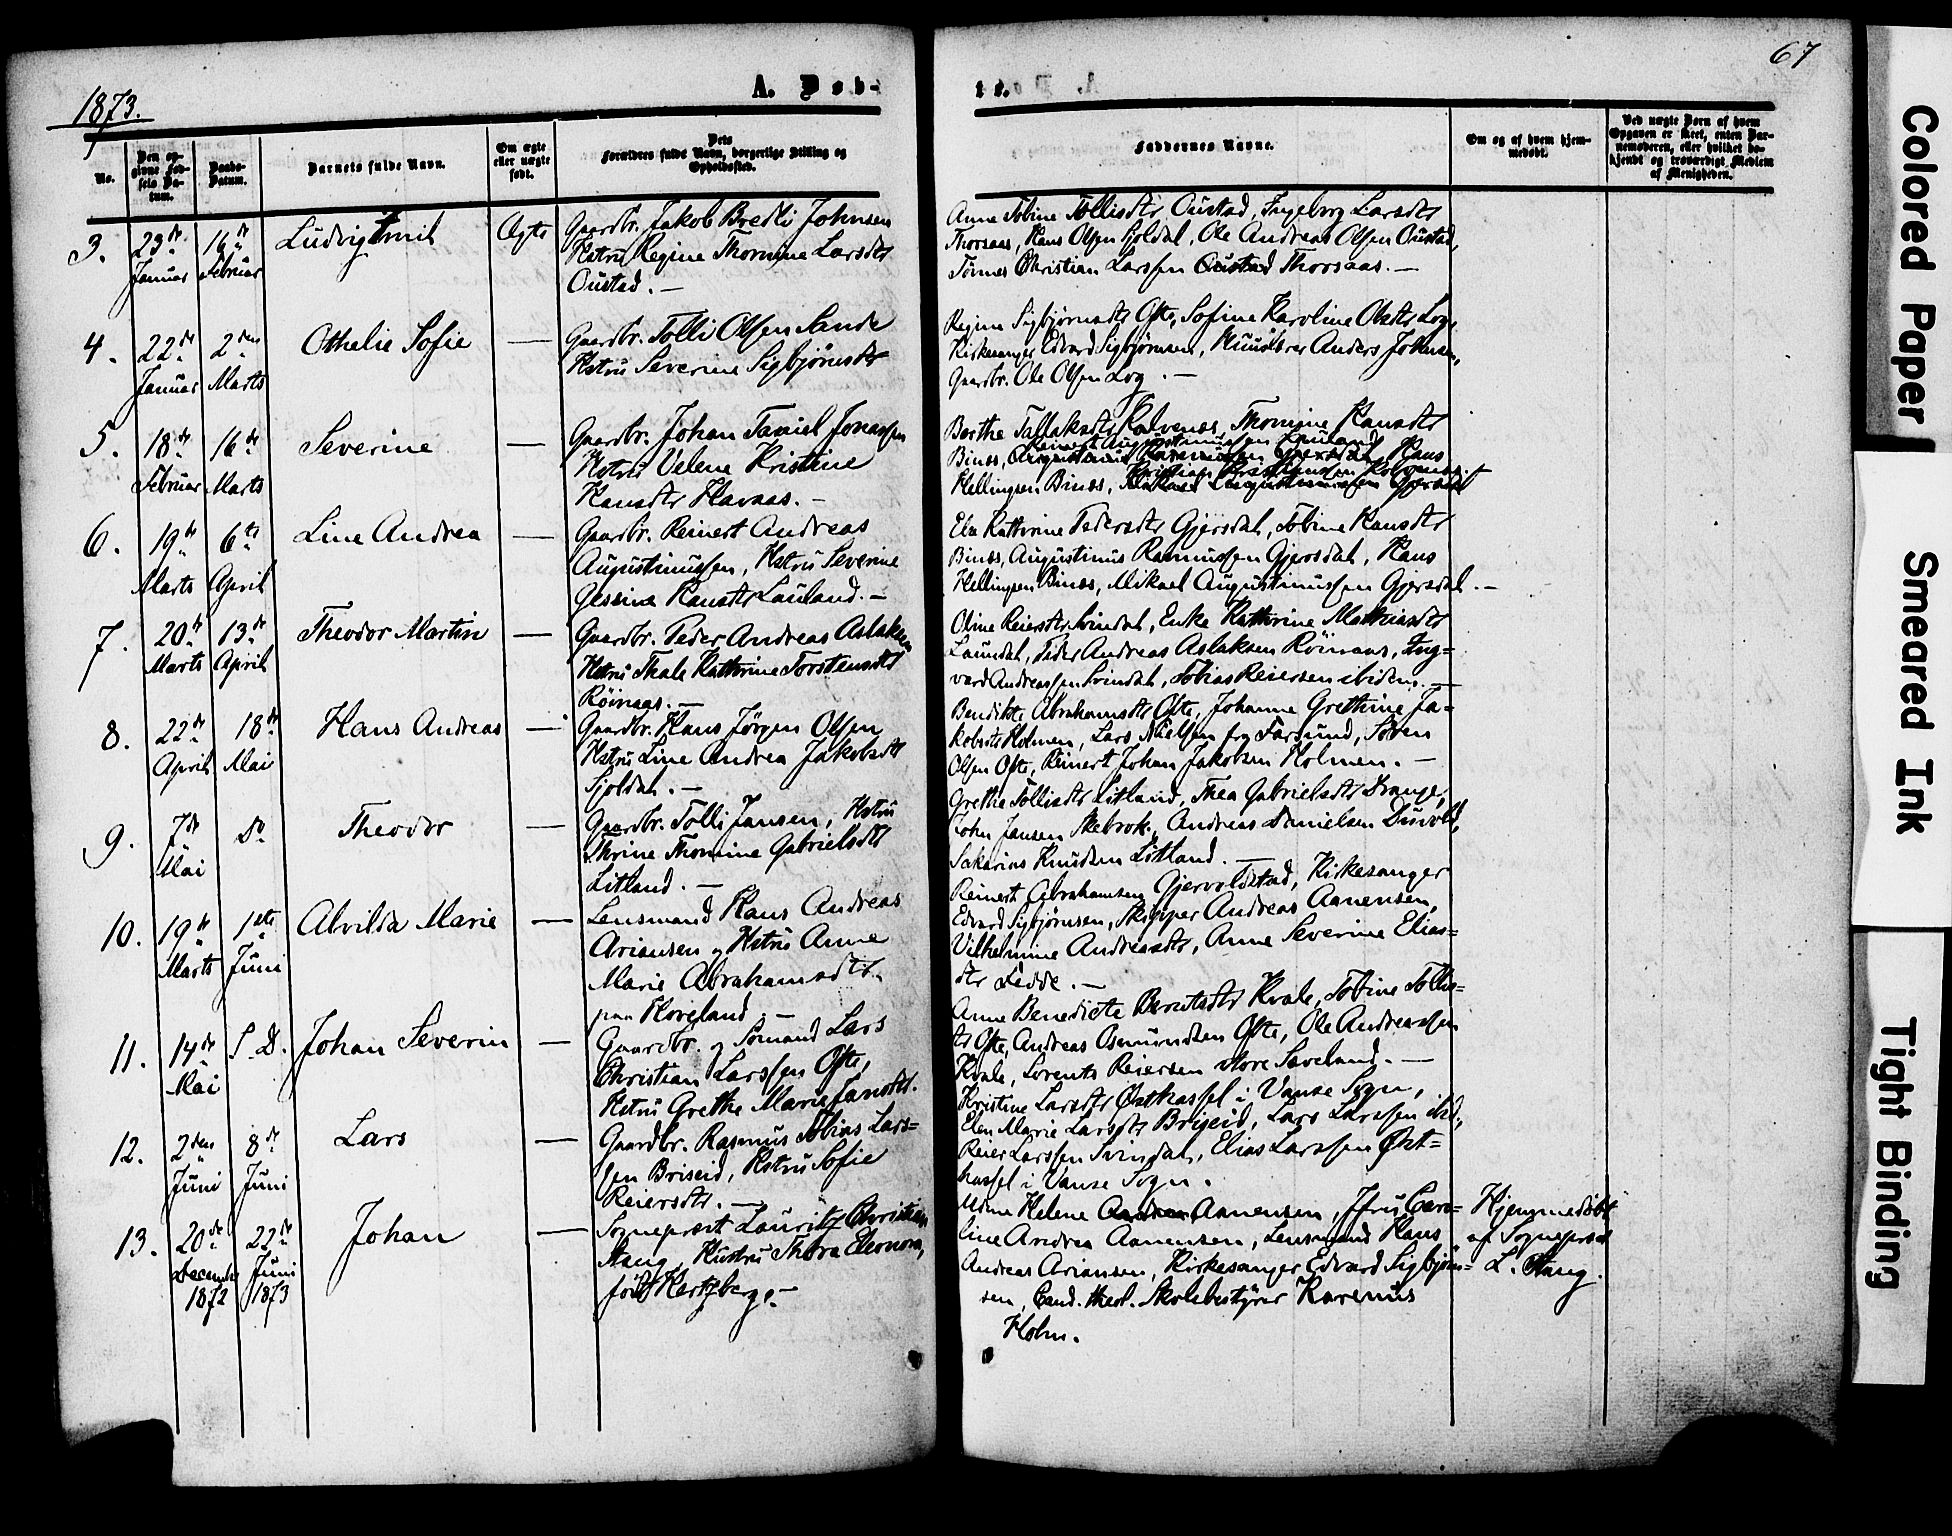 67
1873.
A. Døb-
te.
No.
Den op-
givne Fød-
sels Da-
tum.
Daabs-
Datum.
Barnets fulde Navn.
Om ægte
eller uægte
født.
Dets
Forældres fulde Navn, borgerlige Stilling og
Opholdssted.
Faddernes Navne.
Om og af hvem hjem-
medøbt.
Ved uægte Børn af hvem
Opgaven er skeet, enten Bar-
nemoderen, eller hvilket be-
kjendt og troværdigt Medlem
af Menigheden.
3.
23de
Januar
16de
Februar
Ludvig Emil
Ægte
Gaardbr. Jakob Bredli Johnsen
Hstru Regine Thomine Larsdtr
Oustad. —
Anne Tobine Tollisdtr Oustad, Ingeborg Larsdtr
Thorsaas, Hans Olsen Sjoldal, Ole Andreas Olsen Oustad,
Tønnes Christian Larssen Oustad Thorsaas. —
4.
22de
Januar
2den
Marts
Othelie Sofie
—
Gaardbr. Tolli Olsen Sande
Hstru Severine Sigbjørnsdtr
Regine Sigbjørnsdtr Ofte, Sofine Karoline Olsdtr Log,
Kirkesanger Edvard Sigbjørnsen, Anders Johnsen,
Gaardbr. Ole Olsen Log. —
5.
18de
Februar
16de
Marts
Severine
—
Gaardbr. Johan Daniel Jonassen
Hstru Velene Kristine
Hansdtr Havaas. —
Berthe Tallaksdtr Kolvenes, Thomine Hansdtr
Reinert Augustinussen Lauland
Bines, Augustinus Rasmussen Gjersdal, Hans
Hellingsen Bines, Mikael Augustinussen Gjersdal
6.
19de
Marts
6te
April
Line Andrea
—
Gaardbr. Reinert Andreas
Augustinussen, Hstru Severine
Gessine Hansdtr Lauland. —
Ela Kathrine Pedersdtr Gjersdal, Tobine Hansdtr
Bines, Augustinus Rasmussen Gjersdal, Hans
Hellingsen Bines, Mikael Augustinussen Gjersdal. —
7.
20de
Marts
13de
April
Theodor Martin
—
Gaardbr. Peder Andreas Aslaksen
Hstru Thale Kathrine Torstensdtr
Røinaas. —
Oline Reiersdtr Svindal, Enke Kathrine Mathiasdtr
Laundal, Peder Andreas Aslaksen Røinaas, Ing=
vard Andreassen Svindal, Tobias Reiersen ibidem. —
8.
22de
April
18de
Mai
Hans Andreas
—
Gaardbr. Hans Jørgen Olsen
Hstru Line Andrea Jakobsdtr
Sjoldal. —
Bendikte Abrahamsdtr Ofte, Johanne Grethine Ja=
kobsdtr Holmen, Lars Nielsen fra Farsund, Søren
Olsen Ofte, Reinert Johan Jakobsen Holmen. —
9.
7de
Mai
Do
Theodor
—
Gaardbr. Tolli Jansen, Hstru
Thrine Thomine Gabrielsdtr
Litland. —
Grethe Tollisdtr Litland, Thea Gabrielsdtr Drange,
John Jansen Skebrok, Andreas Danielsen Duvold,
Sakarias Knudsen Litland. —
10.
19de
Marts
1ste
Juni
Alvilda Marie
—
Lensmand Hans Andreas
Ariansen og Hstru Anne
Marie Abrahamsdtr
paa Hoveland. —
Reinert Abrahamsen Gjervoldstad, Kirkesanger
Edvard Sigbjørnsen, Skipper Andreas Aanensen,
Vilhelmine Andreasdtr, Anne Severine Elias=
dtr Fedde. —
11.
14de
Mai
S. D.
Johan Severin
—
Gaardbr. og Sømand Lars
Christian Larssen Ofte,
Hstru Grethe Marie Jansdtr.
Anne Benedicte Berntsdtr Kvale, Tobine Tollis=
dtr Ofte, Andreas Osmundsen Ofte, Ole Andreassen
Kvale, Lorents Reiersen store Sæveland. —
12.
2den
Juni
8de
Juni
Lars
—
Gaardbr. Rasmus Tobias Lars=
sen Briseid, Hstru Sofie
Reiersdtr. —
Kristine Larsdtr Østhassel i Vanse Sogn,
Elen Marie Larsdtr Briseid, Lars Larssen ibid.,
Reier Larssen Svindal, Elias Larssen Øst=
hassel i Vanse Sogn.
13.
20de
December
1872
22de
Juni
1873
Johan
—
Sogneprest Lauritz Christian
Stang, Hustru Thora Eleonora,
født Hertzberg. —
Helene Aanensen, Jfru Caro=
line Andrea Aanensen, Lensmand Hans
Andreas Ariansen, Kirkesanger Edvard Sigbjørn=
sen, Cand. theol. Skolebestyrer Rasmus
Holm.
Hjemmedøbt
af Sogneprest
L. Stang.
Colored Paper
Smeared Ink
Tight Binding